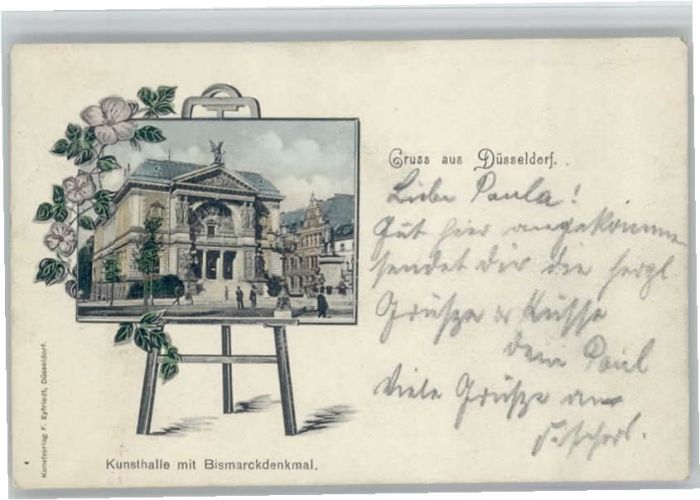 Gruss aus Düsseldorf.
Liebe Paula!
Gut hier angekommen
sendet dir die herzl
Grüsze & Küsse
dein Paul
Viele Grüsze an
Kunsthalle mit Bismarckdenkmal.
Kunstverlag F. Eyfriedt, Düsseldorf.